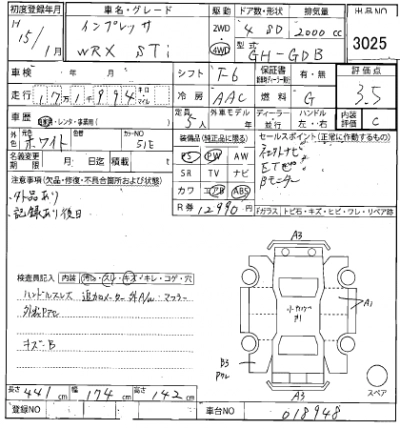 初度登録年月 車名・グレード 駆動 ドア数・形状 排気量 出品NO
H 15/1月 インプレッサ WRX STi 2WD 4WD 4 SD 2000 cc 3025
型式 GH-GDB
車検 年 月 シフト F6 保証書 有・無 評価点
走行 171994 キロ マイル 冷房 AAC 燃料 G 3.5
車歴 自家用・レンタ・事業用 定員 5人 外車モデル ディーラー 並行 ハンドル 左・右 内装評価 C
外装色 ホワイト カラーNO 51E 装備品(純正品に限る) セールスポイント(正常に作動するもの)
名義変更期限 月 日迄 積載 t PS PW AW
SR TV ナビ
カワ エアB ABS
R券 12990円
ETC
Bモニター
注意事項(欠品・修復・不具合箇所および状態)
・外品あり
・記録あり後日
Fガラス トビ石・キズ・ヒビ・フレ・リペア跡
検査員記入 内装 汚れ・スレ・キズ・キレ・コゲ・穴
ハンドルスレ 追加メーター 外A/w・マフラー
キズ・B
A3
A1
B3
A3
スペア
長さ 441 cm 幅 174 cm 高さ 142 cm
登録NO 車台NO 018948